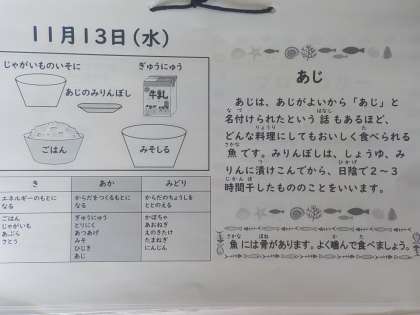 11月13日(水)
じゃがいものいそに
ぎゅうにゅう
あじのみりんぼし
牛乳
ごはん
みそしる
き
あか
みどり
エネルギーのもとに
なる
からだをつくるもとに
なる
からだのちょうしを
ととのえる
ごはん
じゃがいも
あぶら
さとう
ぎゅうにゅう
とりにく
あつあげ
みそ
ひじき
あじ
かぼちゃ
あおねぎ
えのきたけ
たまねぎ
にんじん
あじ
あじは、あじがよいから「あじ」と
名付けられたという話もあるほど、
どんな料理にしてもおいしく食べられる
魚です。みりんぼしは、しょうゆ、み
りんに漬けこんでから、日陰で2~3
時間干したもののことをいいます。
魚には骨があります。よく噛んで食べましょう。